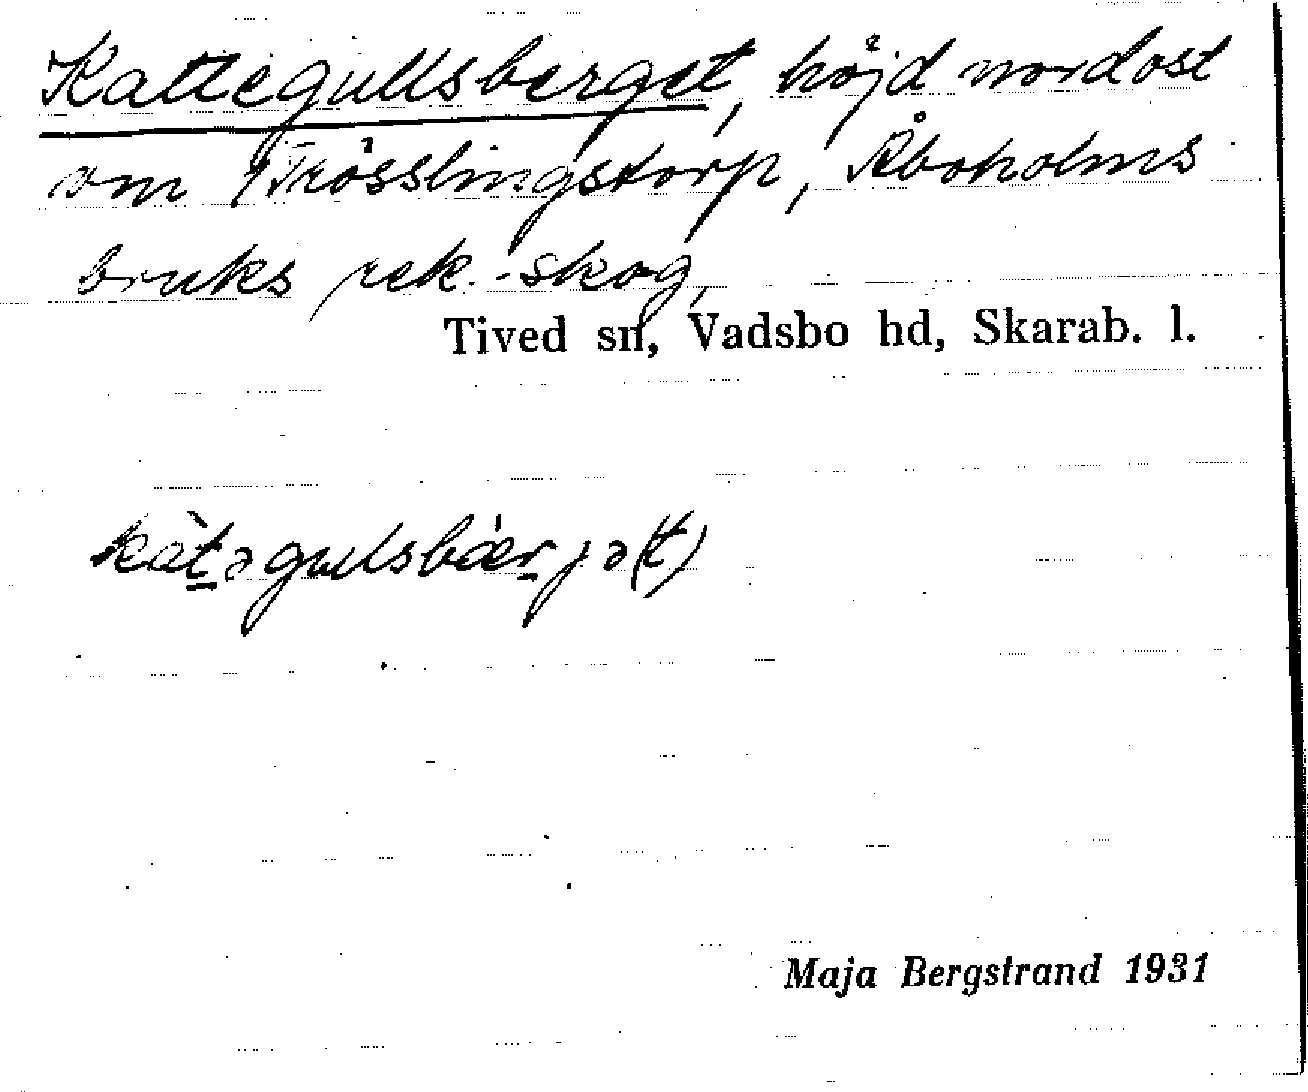 Kattegullsberget, höjd nordost
om Trösslingstorp, Åboholms
bruks rek.-skog,
Tived sn, Vadsbo hd, Skarab. l.
kàt̲əgullsbár̲jə(t)
Maja Bergstrand 1931